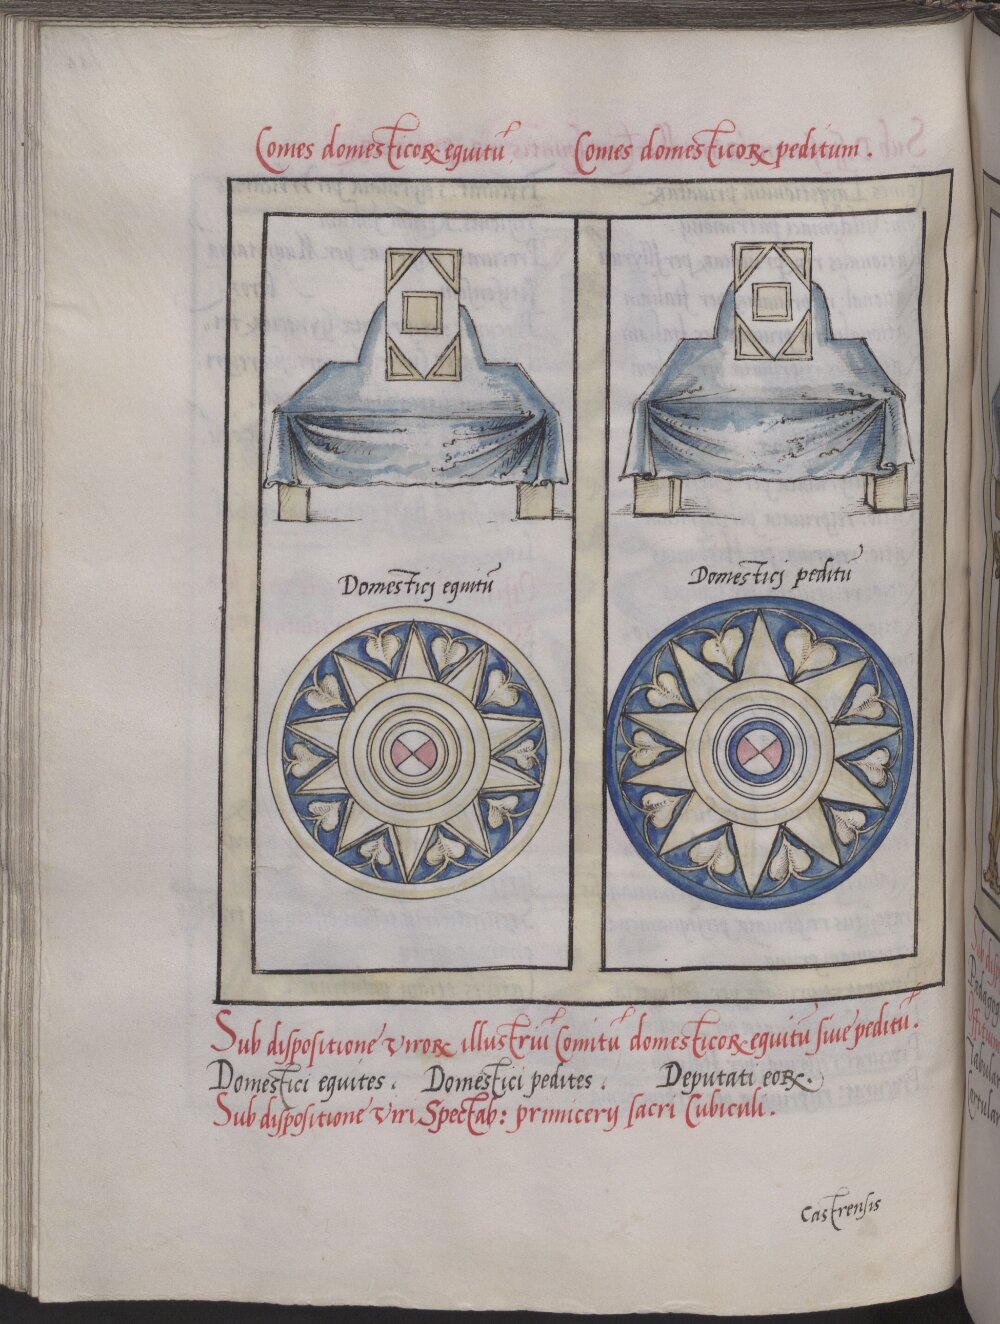 Comes domesticoꝝ equitū Comes domesticoꝝ peditum.
Domesticj equitū
Domesticj peditū
Sub dispositione viroꝝ illustriū Comitū domesticoꝝ equitū siue peditū.
Domestici equites. Domestici pedites. Deputati eoꝝ.
Sub dispositione viri Spectab: primicerij sacri Cubiculi.
Castrensis